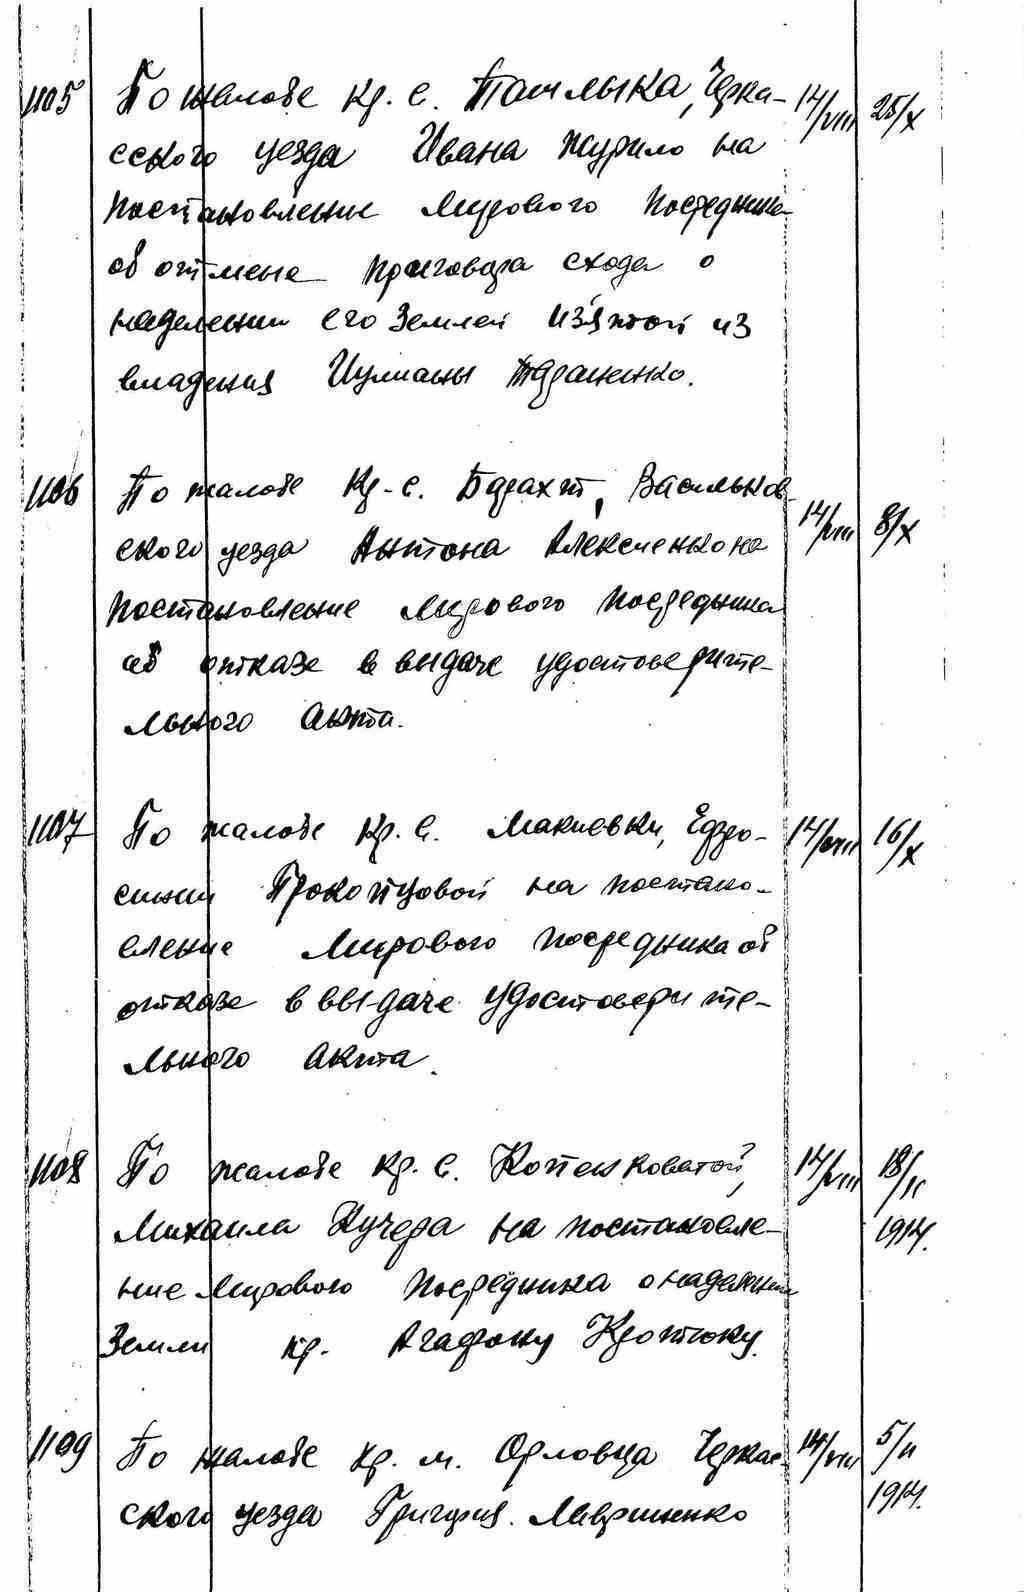 1105 По жалобе кр. с. Ташлыка, Черка- 14/VIII 25/X
сского уезда Ивана Журило на
постановление Мирового Посредника
об отмене приговора схода о
наделении его Землей из'ятой из
владения Иулианы Тараненко.
1106 По жалобе кр-с. Барахт, Васильков- 14/VIII 8/X
ского уезда Антона Алексеенко на
постановление Мирового посредника
об отказе в выдаче удостоверите-
льного акта.
1107 По жалобе кр. с. Макиевки, Ефро- 14/VIII 16/X
синии Прокопцовой на постано-
вление Мирового посредника об
отказе в выдаче удостоверите-
льного акта.
1108 По жалобе кр. с. Копенковатой, 14/VIII 18/II
Михаила Кучера на постановле- 1914.
ние Мирового Посредника о наделении
Земли кр. Агафону Кротюку.
1109 По жалобе кр. м. Орловца Черкас- 14/VIII 5/II
ского уезда Григория Лавриненко 1914.